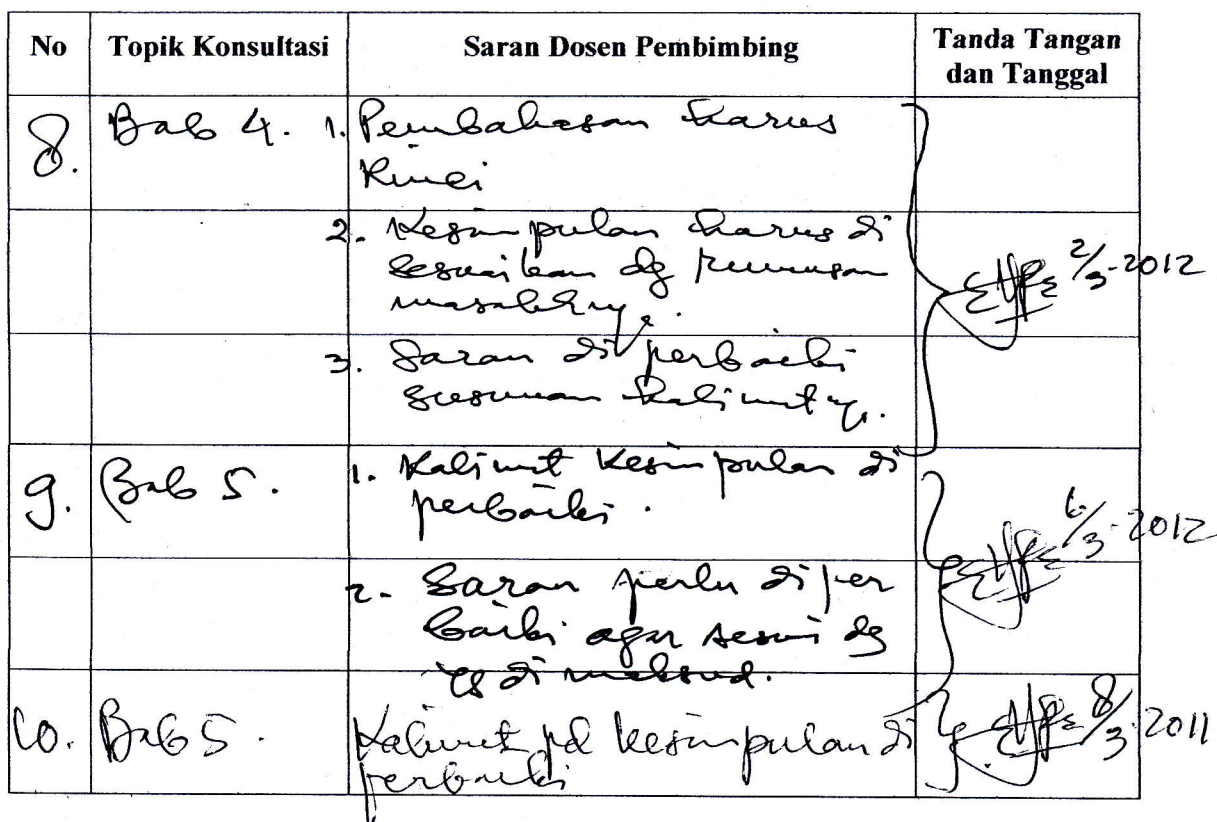 No Topik Konsultasi Saran Dosen Pembimbing Tanda Tangan dan Tanggal
8. Bab 4. 1. Pembahasan harus
Rinci
2. Kesimpulan harus di
sesuaikan dg rumusan
masalahnya.
3. Saran di perbaiki
susunan kalimatny.
2/3-2012
9. Bab 5. 1. Kalimat Kesimpulan di
perbaiki.
6/3-2012
2. Saran perlu di per
baiki agar sesuai dg
yg di maksud.
10. Bab 5. Kalimat pd kesimpulan di
perbaiki
8/3-2011